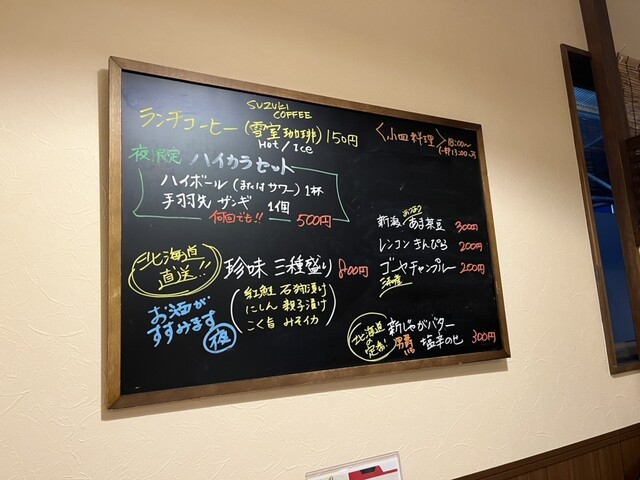 SUZUKI
COFFEE
ランチコーヒー (雪室珈琲) 150円
Hot / Ice
夜限定 ハイカラセット
ハイボール (またはサワー) 1杯
手羽先 ザンギ 1個
何回でも!! 500円
北海道
直送!!
珍味 三種盛り 800円
紅鮭 石狩漬け
にしん 親子漬け
こく旨 みそイカ
お酒が
すすみます
夜
<小皿料理> 18:00〜
新潟 あま茶豆 300円
レンコン きんぴら 200円
ゴーヤチャンプルー 200円
北海道
の
定番!
新じゃがバター
男爵
塩辛のせ 300円